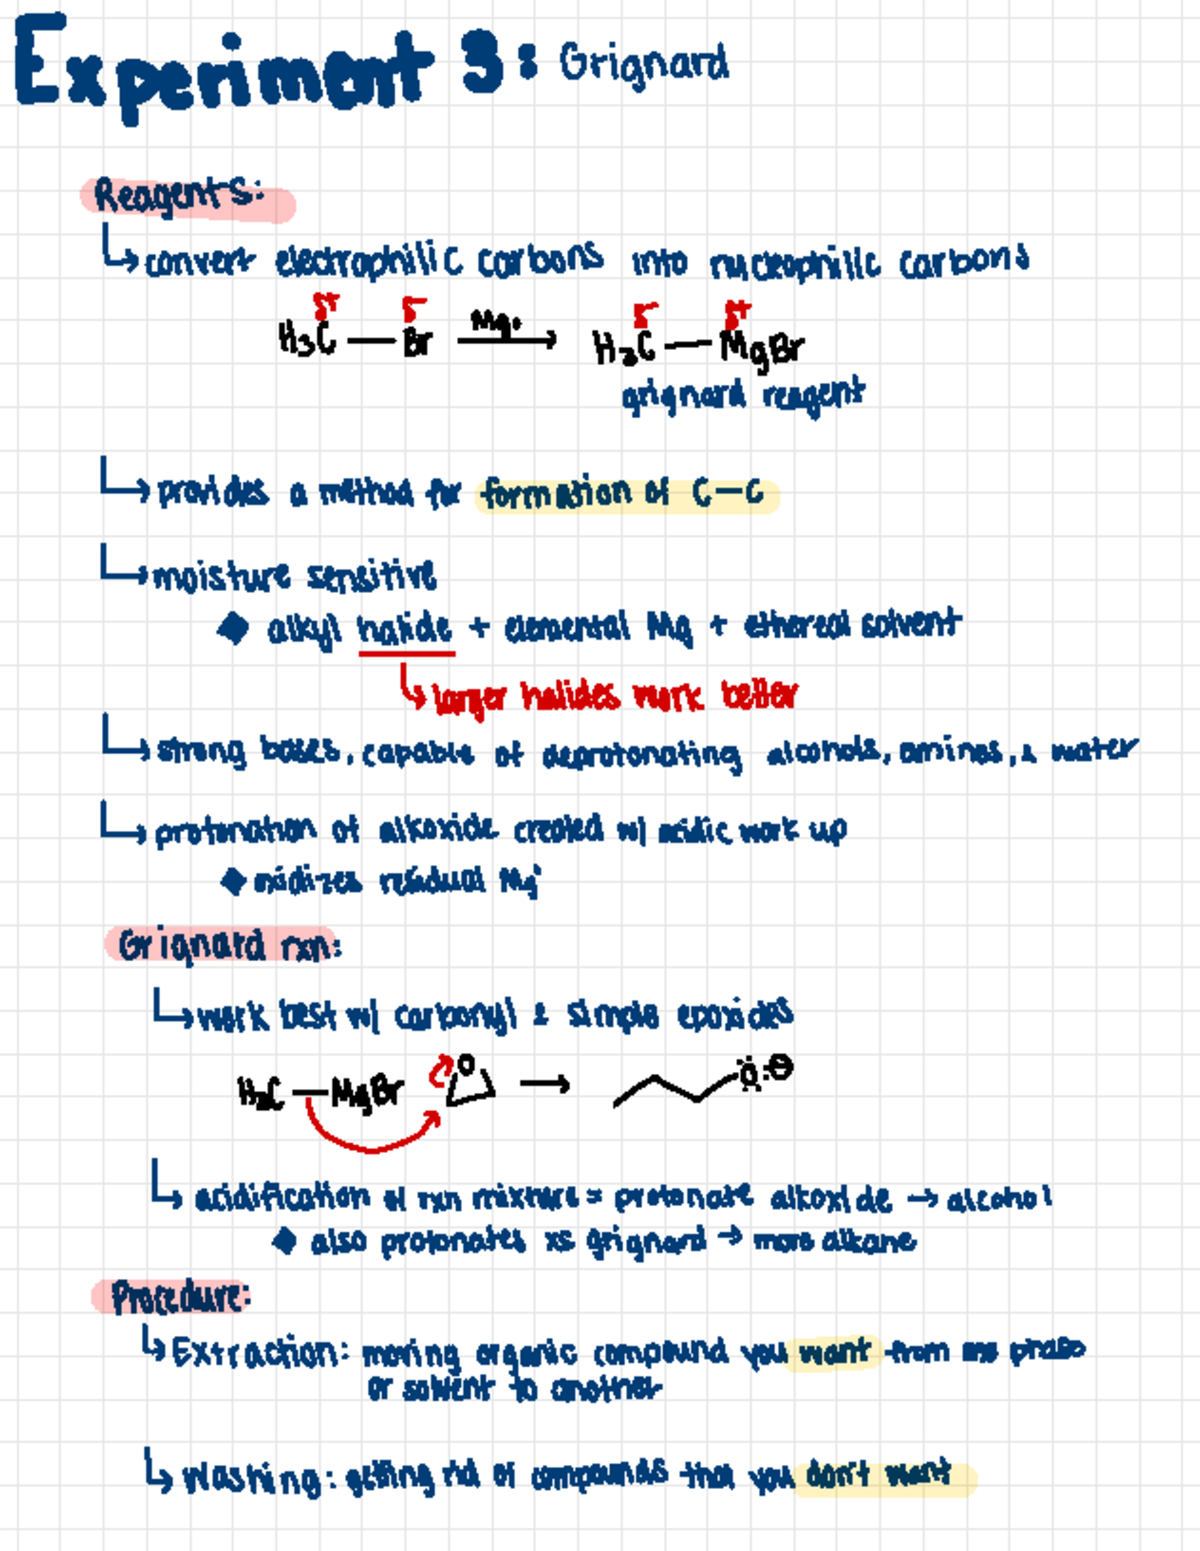 Experiment 3: Grignard
Reagents:
↳ convert electrophilic carbons into nucleophilic carbons
δ+ δ- δ- δ+
H₃C — Br Mg° → H₃C — MgBr
grignard reagent
↳ provides a method for formation of C—C
↳ moisture sensitive
◆ alkyl halide + elemental Mg + ethereal solvent
↳ larger halides work better
↳ strong bases, capable of deprotonating alcohols, amines, & water
↳ protonation of alkoxide created w/ acidic work up
◆ oxidizes residual Mg°
Grignard rxn:
↳ work best w/ carbonyl & simple epoxides
H₃C — MgBr O → :Ö:⊖
↳ acidification of rxn mixture = protonate alkoxide → alcohol
◆ also protonates xs grignard → more alkane
Procedure:
↳ Extraction: moving organic compound you want from one phase
or solvent to another
↳ Washing: getting rid of compounds that you don't want